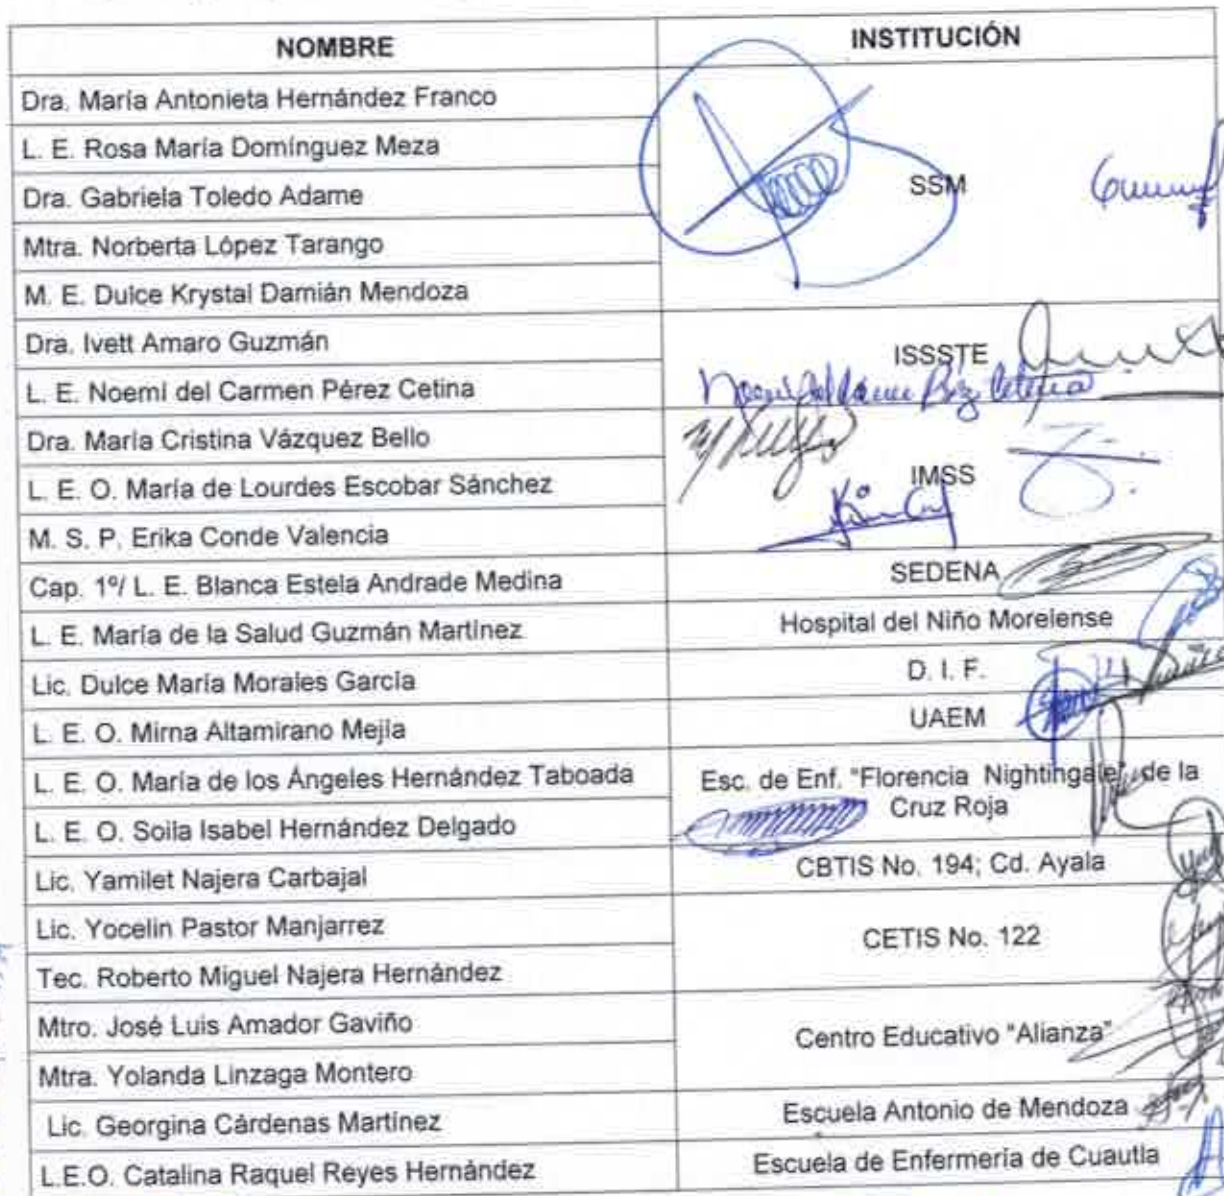 NOMBRE INSTITUCIÓN
Dra. María Antonieta Hernández Franco
L. E. Rosa María Domínguez Meza
Dra. Gabriela Toledo Adame SSM
Mtra. Norberta López Tarango
M. E. Dulce Krystal Damián Mendoza
Dra. Ivett Amaro Guzmán ISSSTE
L. E. Noemí del Carmen Pérez Cetina
Dra. María Cristina Vázquez Bello
L. E. O. María de Lourdes Escobar Sánchez IMSS
M. S. P. Erika Conde Valencia
Cap. 1º/ L. E. Blanca Estela Andrade Medina SEDENA
L. E. María de la Salud Guzmán Martínez Hospital del Niño Morelense
Lic. Dulce María Morales García D. I. F.
L. E. O. Mirna Altamirano Mejía UAEM
L. E. O. María de los Ángeles Hernández Taboada Esc. de Enf. "Florencia Nightingale" de la
L. E. O. Soila Isabel Hernández Delgado Cruz Roja
Lic. Yamilet Najera Carbajal CBTIS No. 194; Cd. Ayala
Lic. Yocelin Pastor Manjarrez CETIS No. 122
Tec. Roberto Miguel Najera Hernández
Mtro. José Luis Amador Gaviño Centro Educativo "Alianza"
Mtra. Yolanda Linzaga Montero
Lic. Georgina Cárdenas Martínez Escuela Antonio de Mendoza
L.E.O. Catalina Raquel Reyes Hernández Escuela de Enfermería de Cuautla